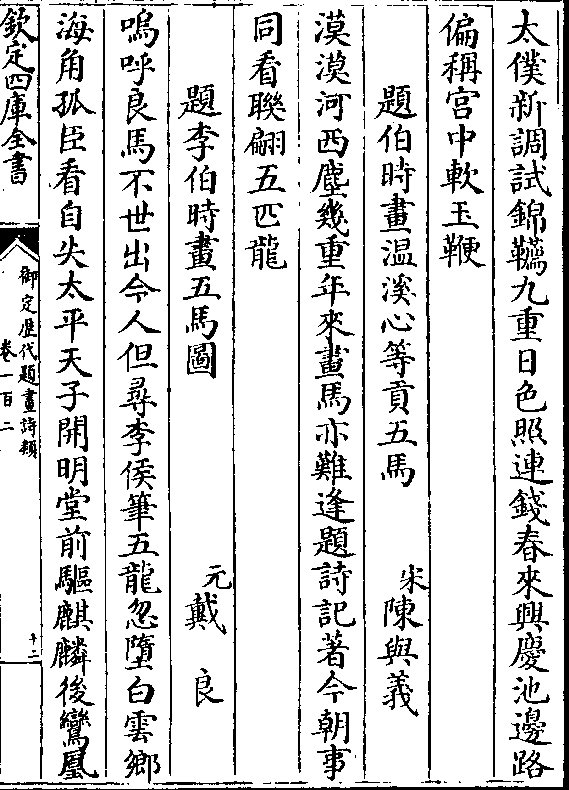 太僕新調試錦韉九重日色照連錢春來興慶池邊路
偏稱宫中軟玉鞭
題伯時畫温溪心等貢五馬 宋陳與義
漠漠河西塵幾重年來畫馬亦難逢題詩記著今朝事
同看聯翩五匹龍
題李伯時畫五馬圖 元戴良
嗚呼良馬不世出令人但尋李侯筆五龍忽墮白雲鄉
海角孤臣看自失太平天子開明堂前驅麒麟後鸞凰
欽定四庫全書
御定歷代題畫詩類
卷一百二
十二